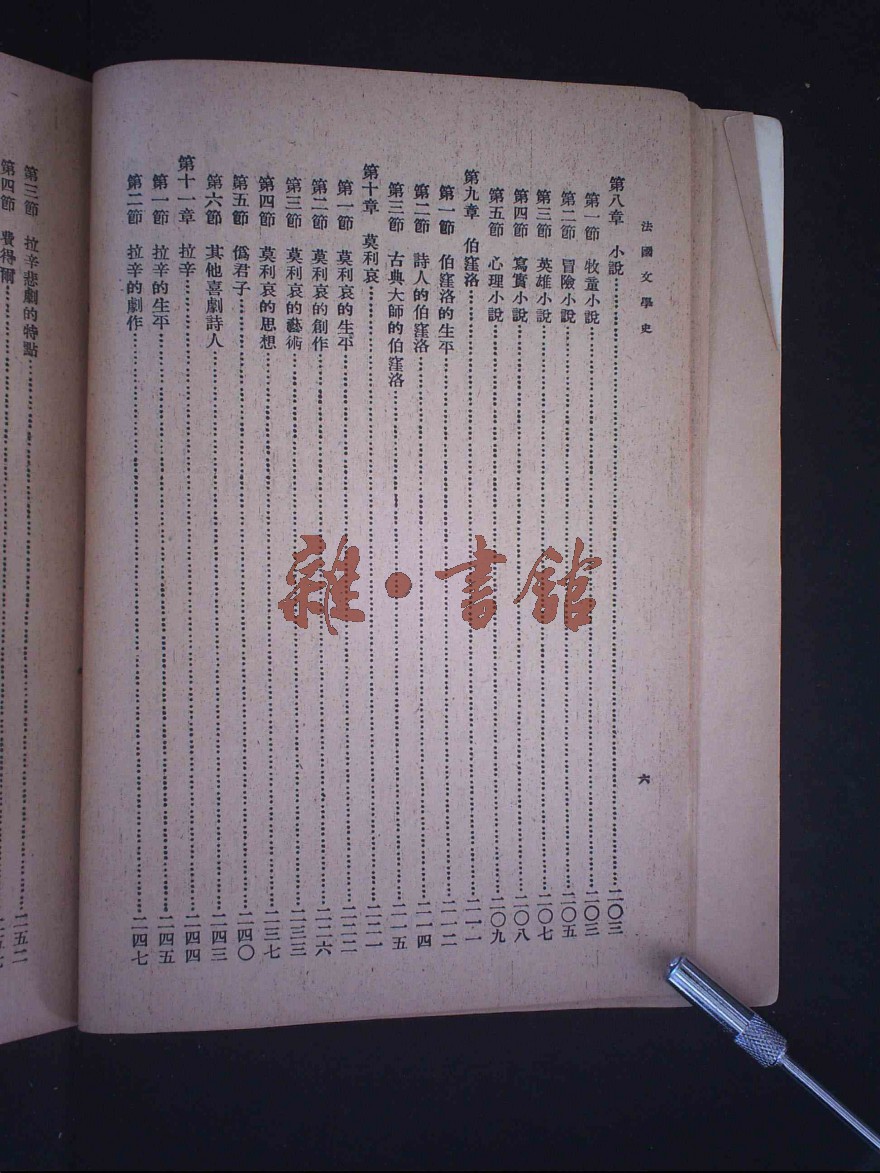 法國文學史
六
第八章 小說……二〇三
第一節 牧童小說……二〇三
第二節 冒險小說……二〇五
第三節 英雄小說……二〇七
第四節 寫實小說……二〇八
第五節 心理小說……二〇九
第九章 伯窪洛……二一一
第一節 伯窪洛的生平……二一二
第二節 詩人的伯窪洛……二一四
第三節 古典大師的伯窪洛……二一五
第十章 莫利哀……二二一
第一節 莫利哀的生平……二二二
第二節 莫利哀的創作……二二六
第三節 莫利哀的藝術……二三三
第四節 莫利哀的思想……二三七
第五節 僞君子……二四〇
第六節 其他喜劇詩人……二四三
第十一章 拉辛……二四四
第一節 拉辛的生平……二四五
第二節 拉辛的劇作……二四七
第三節 拉辛悲劇的特點……二五二
第四節 費得爾……二五七
雜·書館